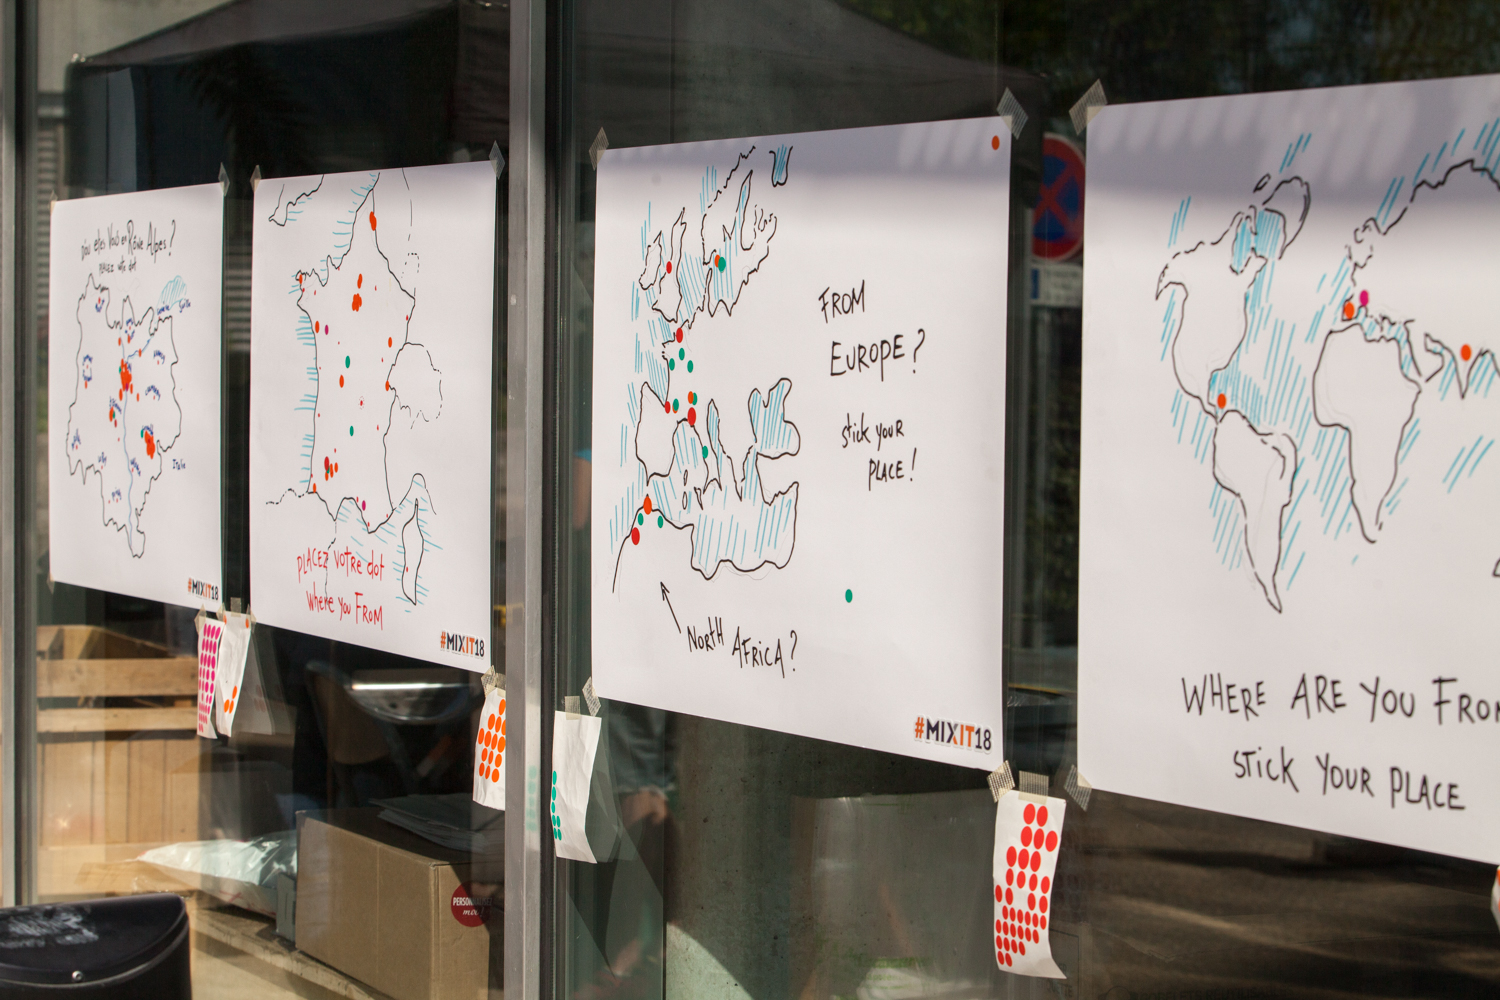 D'où êtes Vous en Rhône Alpes?
PLACEZ votre dot
Italie
#MIXIT18
PLACEZ Votre dot
Where you FROM
#MIXIT18
FROM
EUROPE?
stick your
PLACE!
NORTH AFRICA?
#MIXIT18
WHERE ARE YOU FROM
STICK YOUR PLACE